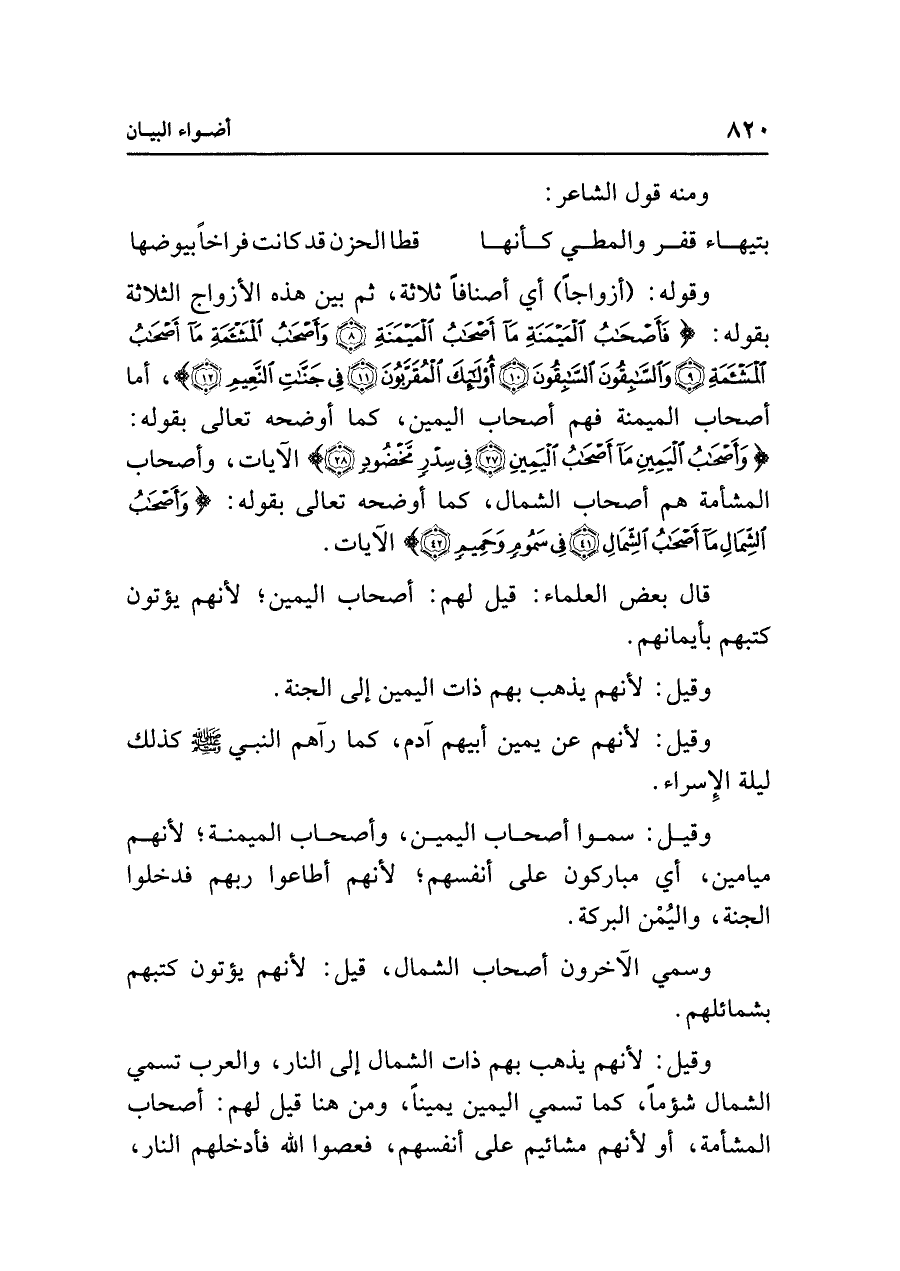 ٨٢٠ أضواء البيان
ومنه قول الشاعر:
بتيهاء قفر والمطي كأنها قطا الحزن قد كانت فراخاً بيوضها
وقوله: (أزواجاً) أي أصنافاً ثلاثة، ثم بين هذه الأزواج الثلاثة
بقوله: ﴿ فَأَصْحَٰبُ ٱلْمَيْمَنَةِ مَآ أَصْحَٰبُ ٱلْمَيْمَنَةِ ۝٨ وَأَصْحَٰبُ ٱلْمَشْـَٔمَةِ مَآ أَصْحَٰبُ
ٱلْمَشْـَٔمَةِ ۝٩ وَٱلسَّٰبِقُونَ ٱلسَّٰبِقُونَ ۝١٠ أُو۟لَٰٓئِكَ ٱلْمُقَرَّبُونَ ۝١١ فِى جَنَّٰتِ ٱلنَّعِيمِ ۝١٢﴾، أما
أصحاب الميمنة فهم أصحاب اليمين، كما أوضحه تعالى بقوله:
﴿ وَأَصْحَٰبُ ٱلْيَمِينِ مَآ أَصْحَٰبُ ٱلْيَمِينِ ۝٢٧ فِى سِدْرٍ مَّخْضُودٍ ۝٢٨﴾ الآيات، وأصحاب
المشأمة هم أصحاب الشمال، كما أوضحه تعالى بقوله: ﴿ وَأَصْحَٰبُ
ٱلشِّمَالِ مَآ أَصْحَٰبُ ٱلشِّمَالِ ۝٤١ فِى سَمُومٍ وَحَمِيمٍ ۝٤٢﴾ الآيات.
قال بعض العلماء: قيل لهم: أصحاب اليمين؛ لأنهم يؤتون
كتبهم بأيمانهم.
وقيل: لأنهم يذهب بهم ذات اليمين إلى الجنة.
وقيل: لأنهم عن يمين أبيهم آدم، كما رآهم النبي ﷺ كذلك
ليلة الإِسراء.
وقيل: سموا أصحاب اليمين، وأصحاب الميمنة؛ لأنهم
ميامين، أي مباركون على أنفسهم؛ لأنهم أطاعوا ربهم فدخلوا
الجنة، واليُمْن البركة.
وسمي الآخرون أصحاب الشمال، قيل: لأنهم يؤتون كتبهم
بشمائلهم.
وقيل: لأنهم يذهب بهم ذات الشمال إلى النار، والعرب تسمي
الشمال شؤماً، كما تسمي اليمين يميناً، ومن هنا قيل لهم: أصحاب
المشأمة، أو لأنهم مشائيم على أنفسهم، فعصوا الله فأدخلهم النار،